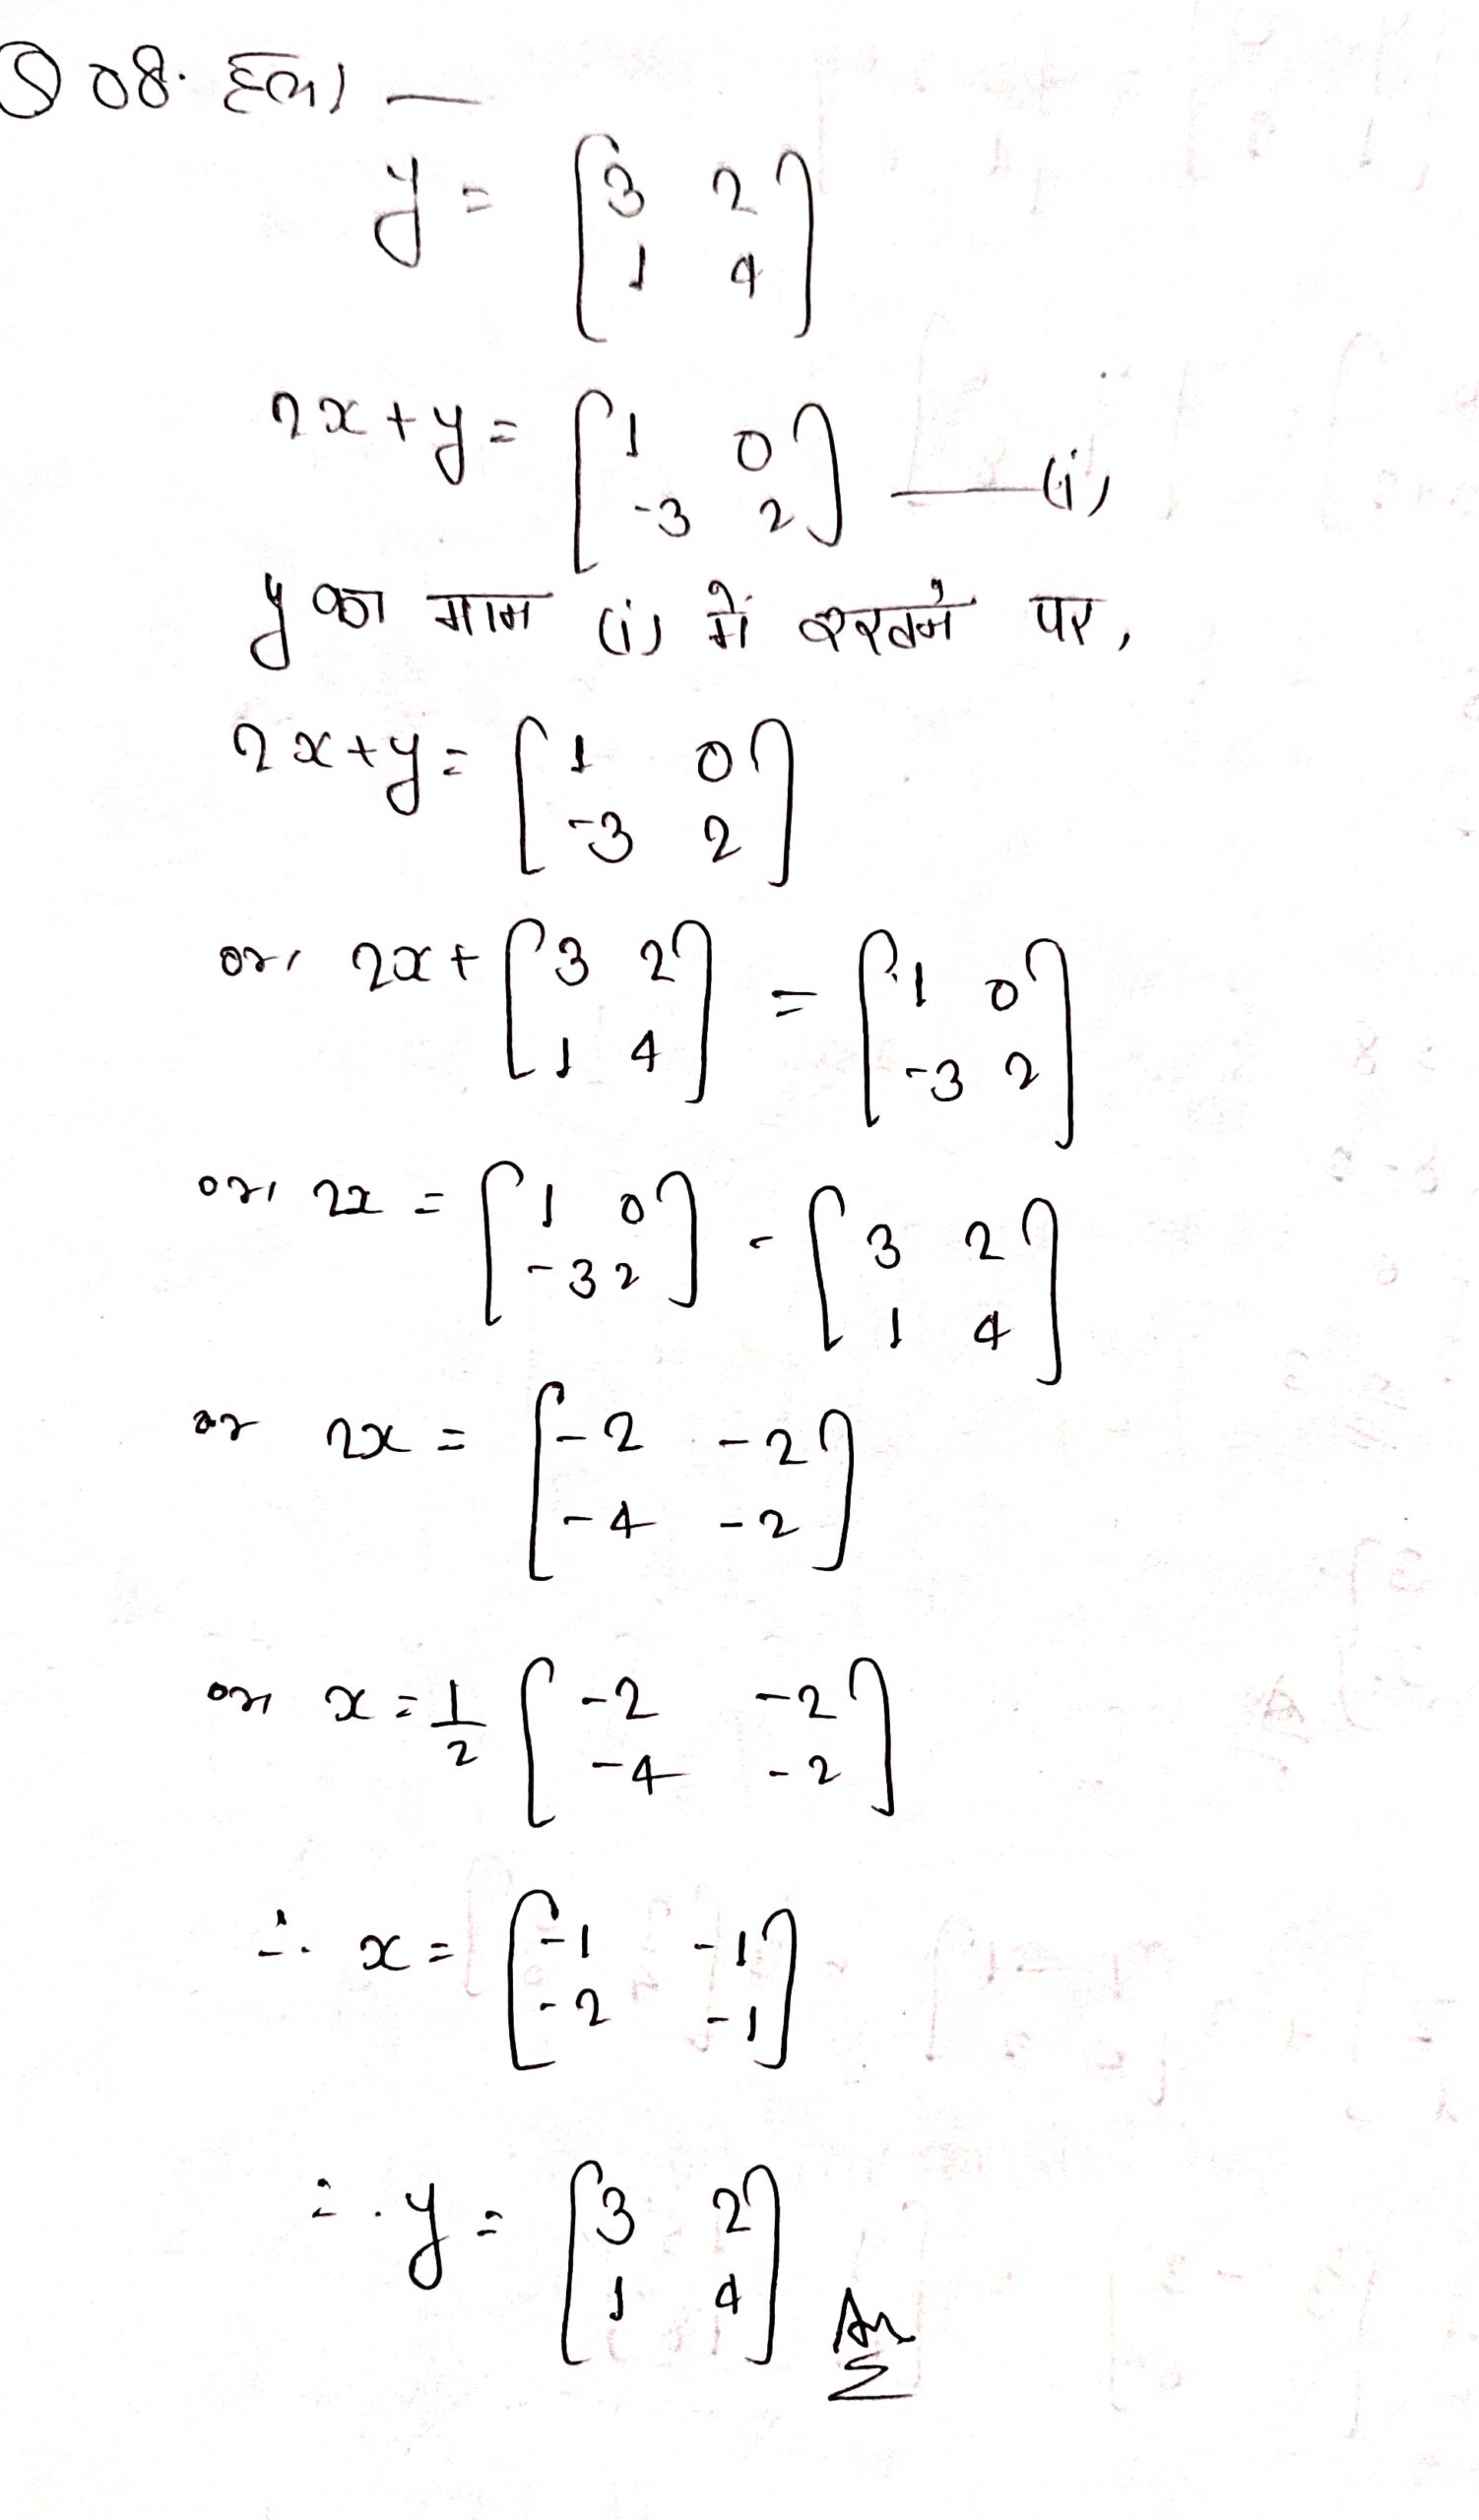 Q 08. हल। —
y = [3 2
1 4]
2x+y = [1 0
-3 2] — (i)
y का मान (i) में रखने पर,
2x+y = [1 0
-3 2]
or, 2x+ [3 2
1 4] = [1 0
-3 2]
or, 2x = [1 0
-3 2] - [3 2
1 4]
or 2x = [-2 -2
-4 -2]
or, x = 1/2 [-2 -2
-4 -2]
∴ x = [-1 -1
-2 -1]
∴ y = [3 2
1 4] Ans